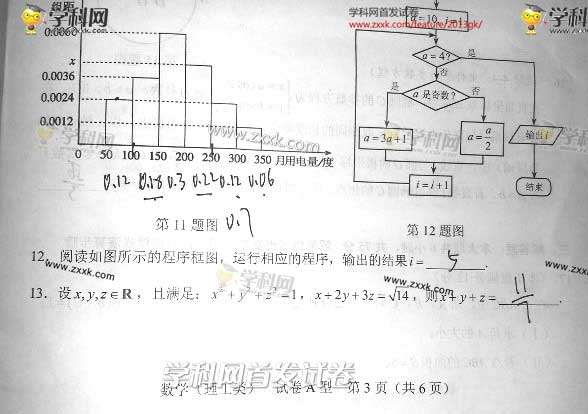 组距
0.0060
x
0.0036
0.0024
0.0012
0 50 100 150 200 250 300 350 月用电量/度
0.12 0.18 0.3 0.22 0.12 0.06
第11题图 0.7
学科网首发试卷
www.zxxk.com/feature/2013gk/
a=10, i=1
a=4? 是
否
是 a是奇数? 否
a=3a+1
a=a/2
输出i
i=i+1
结束
第12题图
12. 阅读如图所示的程序框图,运行相应的程序,输出的结果i= 5 .
13. 设x,y,z∈R,且满足:x²+y²+z²=1,x+2y+3z=√14,则x+y+z= .
学科网首发试卷
数学(理工类) 试卷A型 第3页(共6页)
学科网
www.zxxk.com
学科网
www.zxxk.com
学科网
www.zxxk.com
学科网
www.zxxk.com
www.zxxk.com